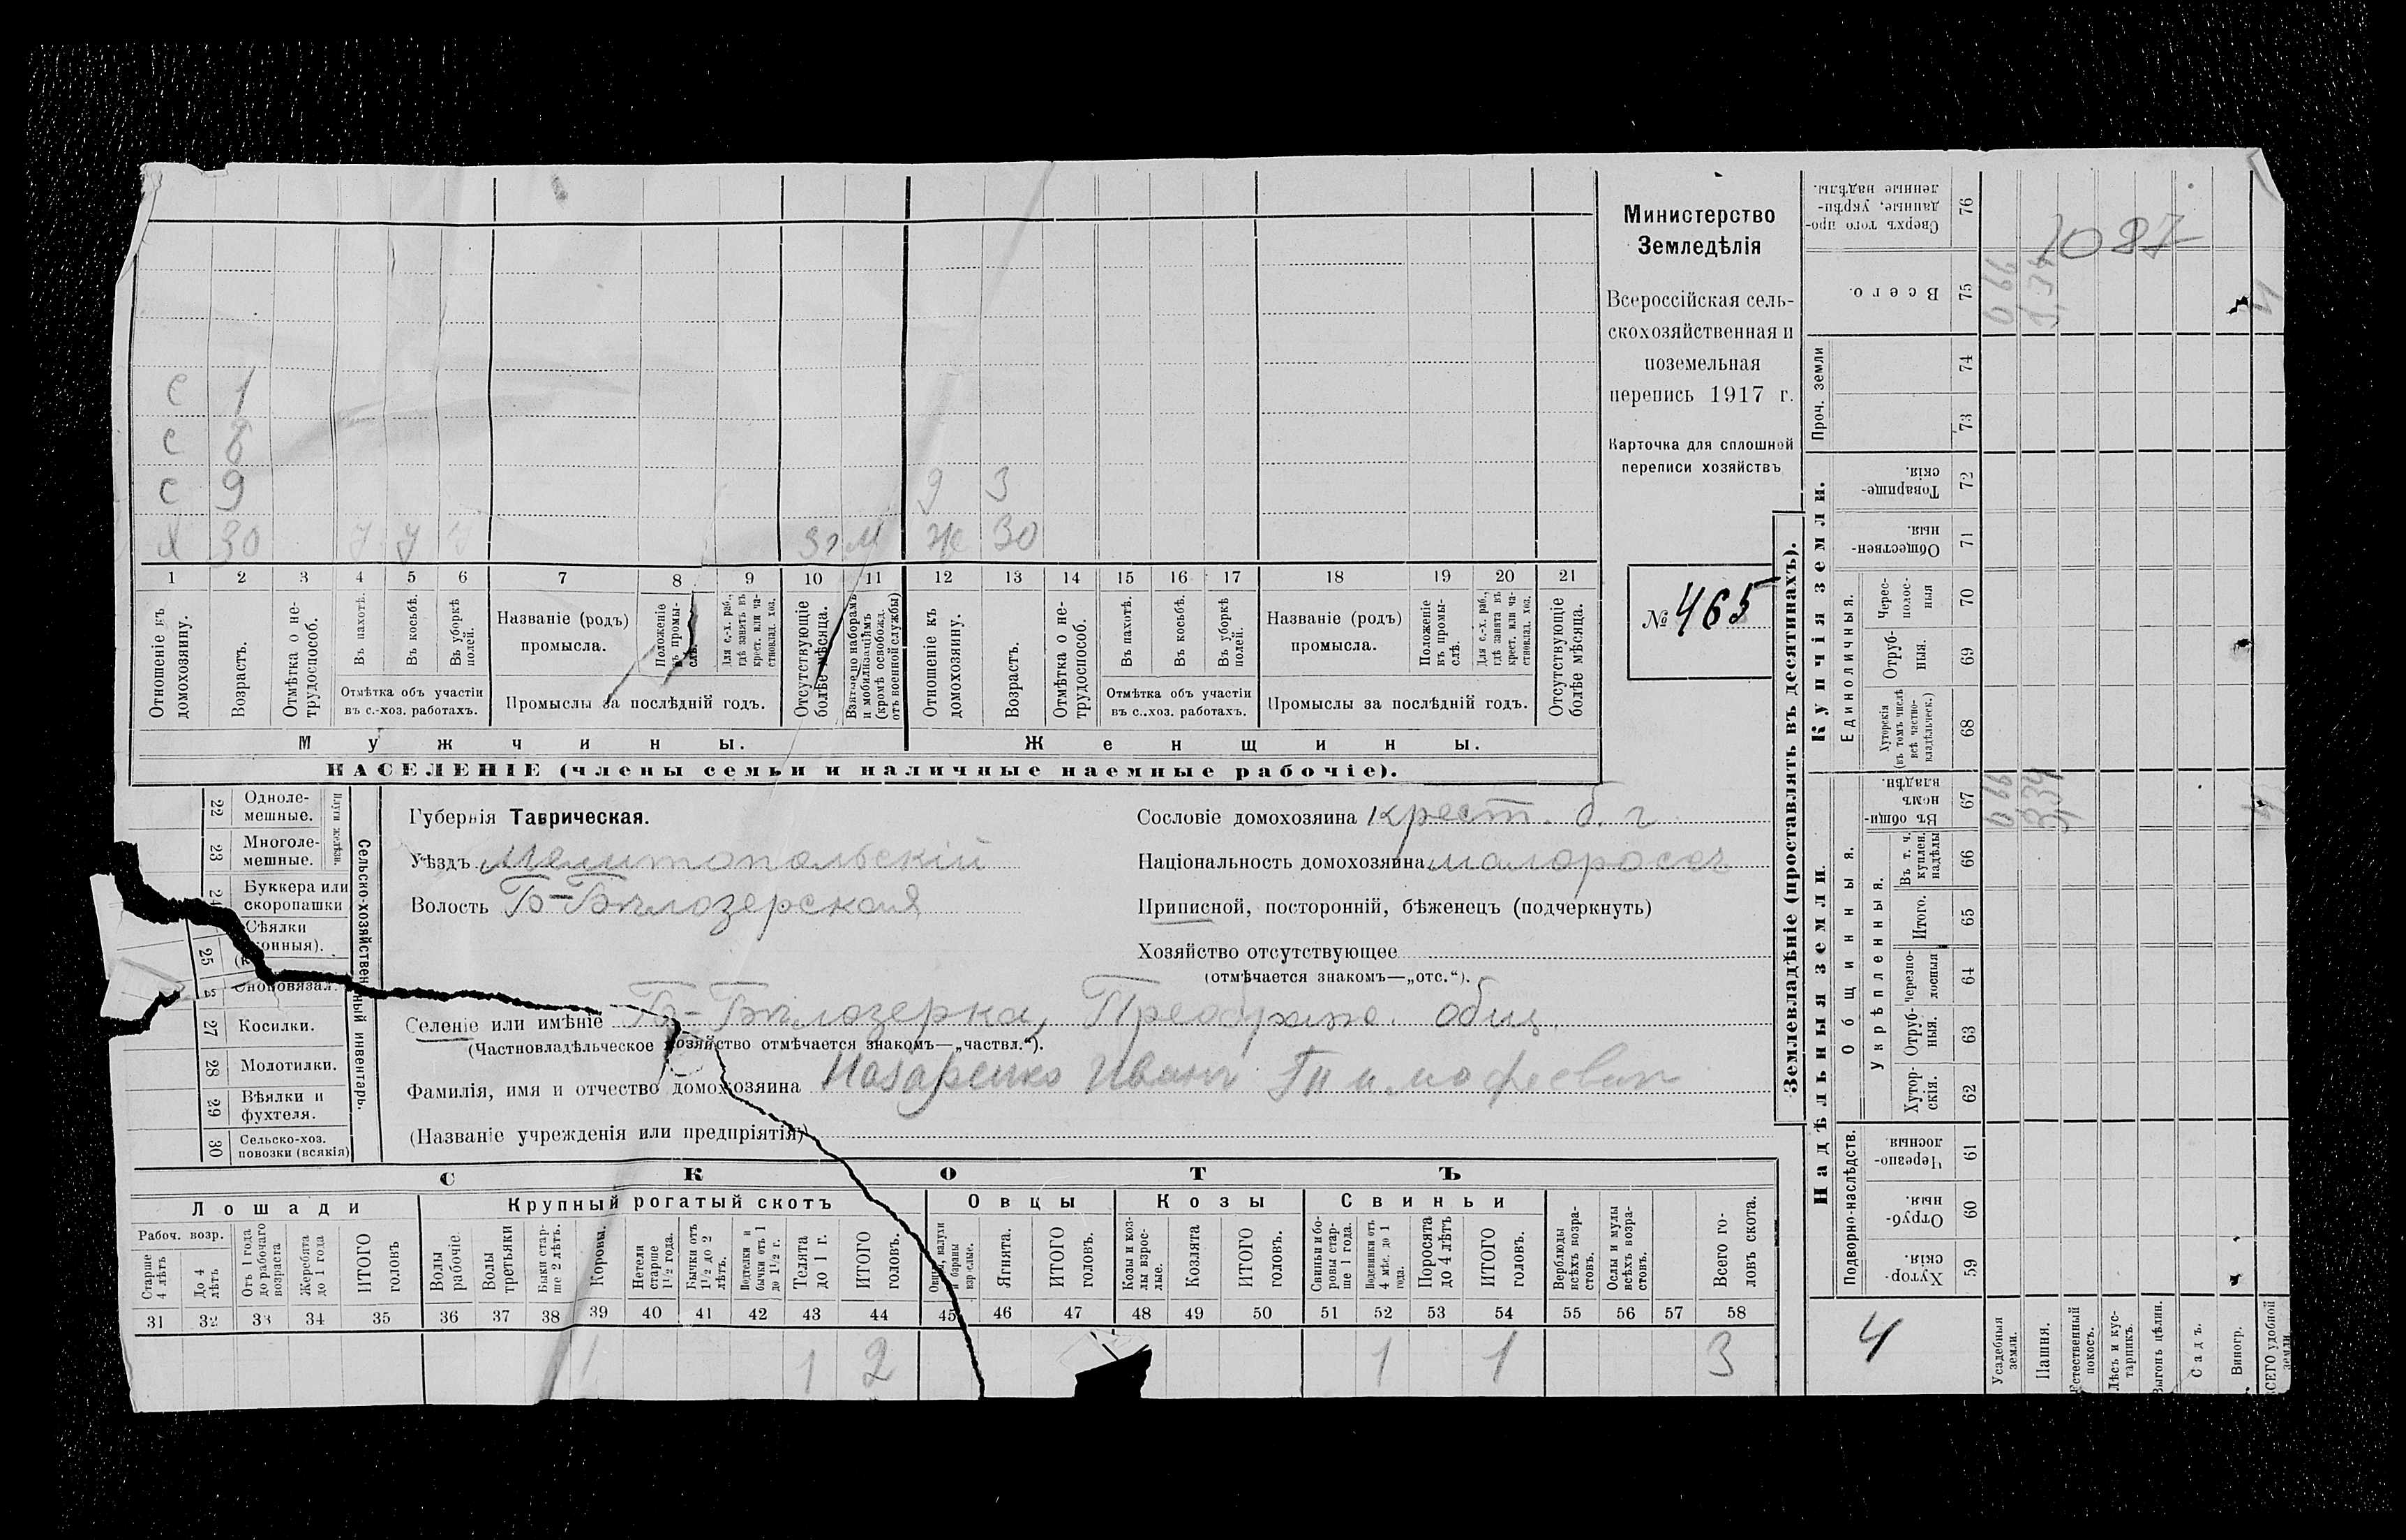 Министерство
Земледѣлія
Всероссійская сель-
скохозяйственная и
поземельная
перепись 1917 г.
Карточка для сплошной
переписи хозяйствъ
№ 465
с 1
с
с 9 3
30 Ж 30
1 2 3 4 5 6 7 8 9 10 11 12 13 14 15 16 17 18 19 20 21
Отношеніе къ домохозяину.
Возрастъ.
Отмѣтка о не-трудоспособ.
Въ пахотѣ.
Въ косьбѣ.
Въ уборкѣ полей.
Отмѣтка объ участіи
въ с.-хоз. работахъ.
Названіе (родъ)
промысла.
Положеніе въ промы-слѣ.
Для с.-х. раб., гдѣ занятъ въ крест. или ча-стновлад. хоз.
Промыслы за послѣдній годъ.
Отсутствующіе болѣе мѣсяца.
Взятые по наборамъ и мобилизаціямъ (кромѣ освобожд. отъ военной службы)
Отношеніе къ домохозяину.
Возрастъ.
Отмѣтка о не-трудоспособ.
Въ пахотѣ.
Въ косьбѣ.
Въ уборкѣ полей.
Отмѣтка объ участіи
въ с.-хоз. работахъ.
Названіе (родъ)
промысла.
Положеніе въ промы-слѣ.
Для с.-х. раб., гдѣ занята въ крест. или ча-стновлад. хоз.
Промыслы за послѣдній годъ.
Отсутствующіе болѣе мѣсяца.
Мужчины. Женщины.
НАСЕЛЕНІЕ (члены семьи и наличные наемные рабочіе).
22 Одноле-мешные.
23 Многоле-мешные.
Плуги желѣзн.
24 Буккера или скоропашки
25 Сѣялки (конныя).
Сноповязал.
27 Косилки.
28 Молотилки.
29 Вѣялки и фухтеля.
30 Сельско-хоз. повозки (всякія)
Сельско-хозяйственный инвентарь.
Губернія Таврическая.
Уѣздъ Мелитопольскій
Волость Б-Бѣлозерская
Сословіе домохозяина крест. б. г
Національность домохозяина малороссъ
Приписной, посторонній, бѣженецъ (подчеркнуть)
Хозяйство отсутствующее
(отмѣчается знакомъ—„отс.“).
Селеніе или имѣніе Б-Бѣлозерка, Преображ. общ.
(Частновладѣльческое хозяйство отмѣчается знакомъ—„частвл.“).
Фамилія, имя и отчество домохозяина Назаренко Иванъ Тимофеевич
(Названіе учрежденія или предпріятія)
СКОТЪ
Лошади Крупный рогатый скотъ Овцы Козы Свиньи
Рабоч. возр.
Старше 4 лѣтъ
До 4 лѣтъ
Отъ 1 года до рабочаго возраста
Жеребята до 1 года
ИТОГО головъ
Волы рабочіе.
Волы третьяки
Быки стар-ше 2 лѣтъ.
Коровы.
Нетели старше 1 1/2 года.
Бычки отъ 1 1/2 до 2 лѣтъ.
Подтелки и бычки отъ 1 до 1 1/2 г.
Телята до 1 г.
ИТОГО головъ.
Овцы, валухи и бараны взрослые.
Ягнята.
ИТОГО головъ.
Козы и коз-лы взрос-лые.
Козлята
ИТОГО головъ.
Свиньи и бо-ровы стар-ше 1 года.
Подсвинки отъ 4 мѣс. до 1 года.
Поросята до 4 лѣтъ
ИТОГО головъ.
Верблюды всѣхъ возра-стовъ.
Ослы и мулы всѣхъ возра-стовъ.
Всего го-ловъ скота.
31 32 33 34 35 36 37 38 39 40 41 42 43 44 45 46 47 48 49 50 51 52 53 54 55 56 57 58
1 1 2 1 1 3
Землевладѣніе (проставлять въ десятинахъ).
Купчія земли.
Надѣльныя земли.
Проч. земли
Единоличныя.
Общинныя.
Укрѣпленныя.
Подворно-наслѣдств.
Сверхъ того про-данные, укрѣп-ленные надѣлы. 76
Всего. 75
74
73
Товарище-скія. 72
Обществен-ныя. 71
Черес-полос-ныя 70
Отруб-ныя. 69
Хуторскія (въ томъ числѣ всѣ частно-владѣльческ.) 68
Въ общин-номъ владѣн. 67
Въ т. ч. куплен. надѣлы 66
Итого. 65
Черезпо-лосныя 64
Отруб-ныя. 63
Хутор-скія. 62
Черезпо-лосныя 61
Отруб-ныя. 60
Хутор-скія. 59
4
1087
0 66
3,34
4
0 66
3 34
4
Усадебныя земли.
Пашня.
Естественный покосъ.
Лѣсъ и кус-тарникъ.
Выгонъ цѣлин.
Садъ.
Виногр.
ВСЕГО удобной земли